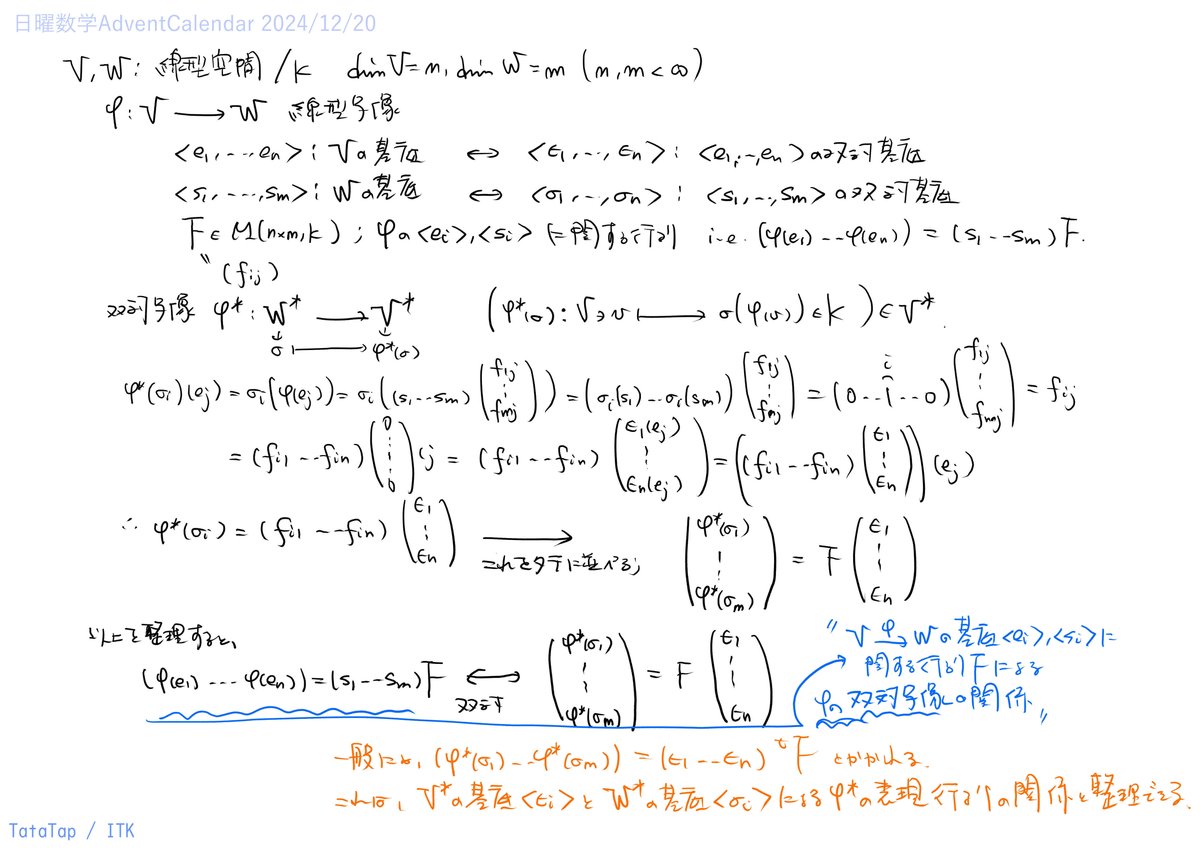 日曜数学AdventCalendar 2024/12/20
V, W : 線型空間 / k dim V = n, dim W = m (n, m < ∞)
φ : V → W 線型写像
<e1, ..., en> : Vの基底 ↔ <ε1, ..., εn> : <e1, ..., en>の双対基底
<s1, ..., sm> : Wの基底 ↔ <σ1, ..., σn> : <s1, ..., sm>の双対基底
F ∈ M(n×m, k) ; φの<ei>, <si>に関する行列 i.e. (φ(e1) ... φ(en)) = (s1 ... sm) F.
〃 (fij)
双対写像 φ* : W* → V* (φ*(σ) : V ∋ v ↦ σ(φ(v)) ∈ k) ∈ V*.
σ ↦ φ*(σ)
φ*(σi)(ej) = σi(φ(ej)) = σi((s1 ... sm) (f1j ⋮ fmj)) = (σi(s1) ... σi(sm)) (f1j ⋮ fmj) = (0 ... 1 ... 0) (f1j ⋮ fmj) = fij
= (fi1 ... fin) (0 ⋮ 0) (j = (fi1 ... fin) (ε1(ej) ⋮ εn(ej)) = ((fi1 ... fin) (ε1 ⋮ εn)) (ej)
∴ φ*(σi) = (fi1 ... fin) (ε1 ⋮ εn) → これをタテに並べる; (φ*(σ1) ⋮ φ*(σm)) = F (ε1 ⋮ εn)
以上を整理すると、
(φ(e1) ... φ(en)) = (s1 ... sm) F ↔ 双対 (φ*(σ1) ⋮ φ*(σm)) = F (ε1 ⋮ εn)
"V →φ Wの基底<ei>, <si>に
関する行列Fによる
φの双対写像の関係"
一般には, (φ*(σ1) ... φ*(σm)) = (ε1 ... εn) ᵗF とかかれる.
これは, V*の基底<εi>とW*の基底<σi>によるφ*の表現行列の関係と整理できる.
TataTap / ITK